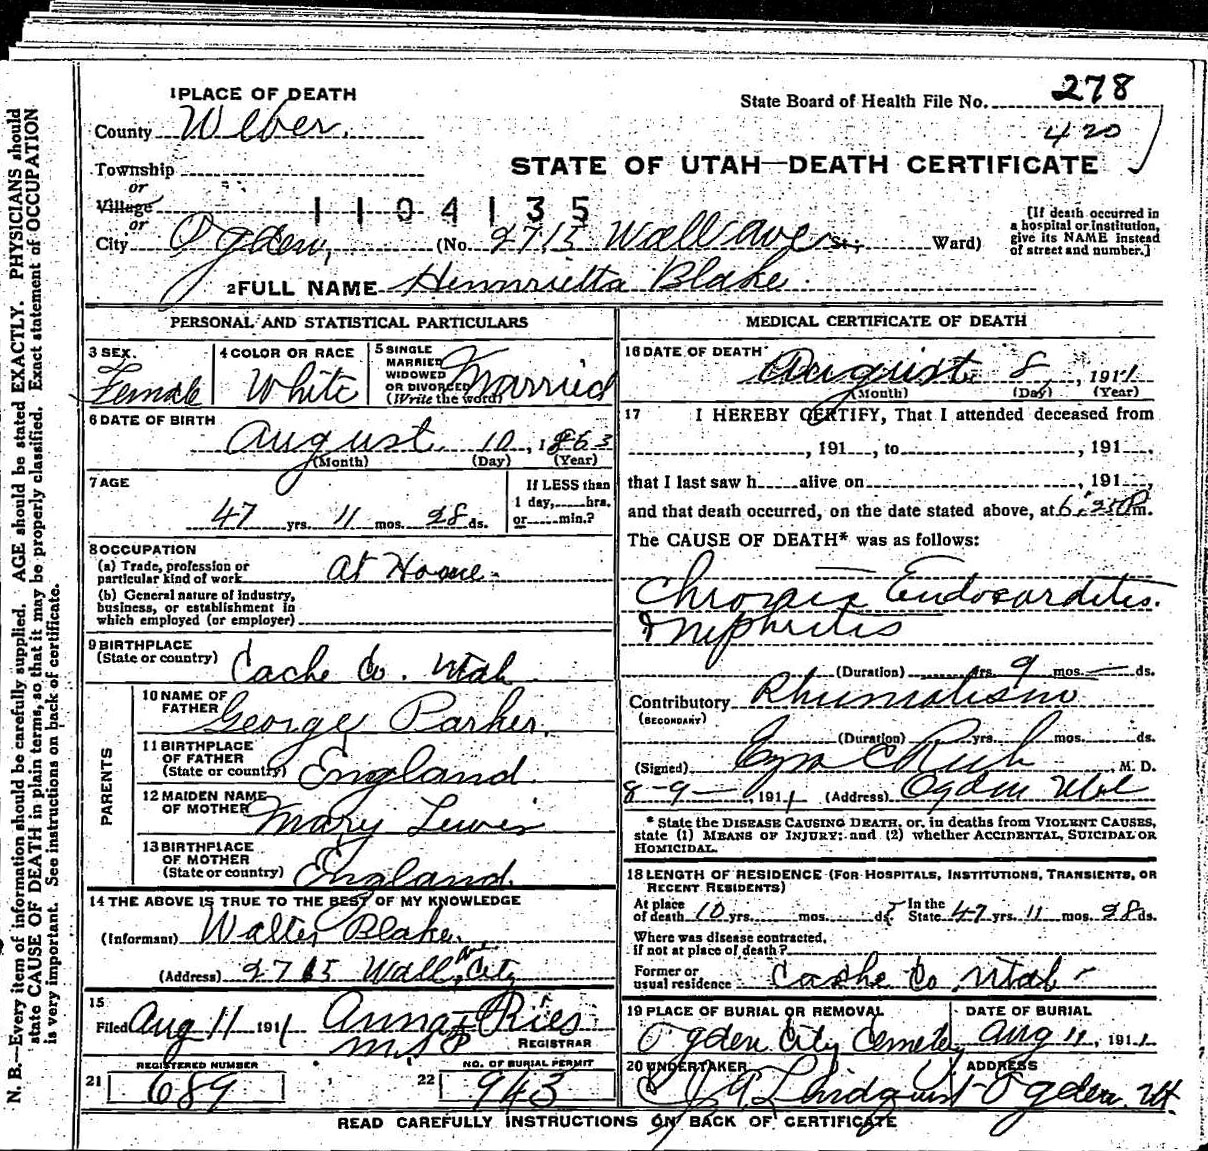 1 PLACE OF DEATH
State Board of Health File No. 278
County Weber.
420
Township
STATE OF UTAH—DEATH CERTIFICATE
or
Village
1104135
or
City Ogden, (No. 2715 Wall ave St., Ward)
[If death occurred in
a hospital or institution,
give its NAME instead
of street and number.]
2 FULL NAME Hennrietta Blake.
PERSONAL AND STATISTICAL PARTICULARS
3 SEX. Female
4 COLOR OR RACE White
5 SINGLE
MARRIED
WIDOWED
OR DIVORCED
(Write the word) Married
6 DATE OF BIRTH
August 10, 1863
(Month) (Day) (Year)
7 AGE
47 yrs. 11 mos. 28 ds.
If LESS than
1 day, hrs.
or min.?
8 OCCUPATION
(a) Trade, profession or
particular kind of work at Home-
(b) General nature of industry,
business, or establishment in
which employed (or employer)
9 BIRTHPLACE
(State or country) Cache Co. Utah
PARENTS
10 NAME OF
FATHER George Parker.
11 BIRTHPLACE
OF FATHER
(State or country) England.
12 MAIDEN NAME
OF MOTHER Mary Lewis
13 BIRTHPLACE
OF MOTHER
(State or country) England.
14 THE ABOVE IS TRUE TO THE BEST OF MY KNOWLEDGE
(Informant) Walter Blake.
(Address) 2715 Wall Ave City
15
Filed Aug 11 1911 Anna Ries
REGISTRAR
REGISTERED NUMBER
21 689
NO. OF BURIAL PERMIT
22 943
MEDICAL CERTIFICATE OF DEATH
16 DATE OF DEATH
August 8, 1911
(Month) (Day) (Year)
17 I HEREBY CERTIFY, That I attended deceased from
, 191 , to , 191 ,
that I last saw h alive on , 191 ,
and that death occurred, on the date stated above, at 6:25 P m.
The CAUSE OF DEATH* was as follows:
Chronic Endocarditis.
& Nephritis
(Duration) yrs. 9 mos. — ds.
Contributory Rhumatism
(SECONDARY)
(Duration) yrs. mos. ds.
(Signed) Ezra C Rich M. D.
8-9-, 1911 (Address) Ogden Utah
* State the DISEASE CAUSING DEATH, or, in deaths from VIOLENT CAUSES,
state (1) MEANS OF INJURY; and (2) whether ACCIDENTAL, SUICIDAL OR
HOMICIDAL.
18 LENGTH OF RESIDENCE (FOR HOSPITALS, INSTITUTIONS, TRANSIENTS, OR
RECENT RESIDENTS)
At place
of death 10 yrs. mos. ds. In the
State 47 yrs. 11 mos. 28 ds.
Where was disease contracted,
if not at place of death?
Former or
usual residence Cache Co Utah-
19 PLACE OF BURIAL OR REMOVAL
Ogden City Cemetery
DATE OF BURIAL
Aug 11, 1911
20 UNDERTAKER
Lindquist
ADDRESS
Ogden. Ut.
READ CAREFULLY INSTRUCTIONS ON BACK OF CERTIFICATE
N. B.—Every item of information should be carefully supplied. AGE should be stated EXACTLY. PHYSICIANS should
state CAUSE OF DEATH in plain terms, so that it may be properly classified. Exact statement of OCCUPATION
is very important. See instructions on back of certificate.